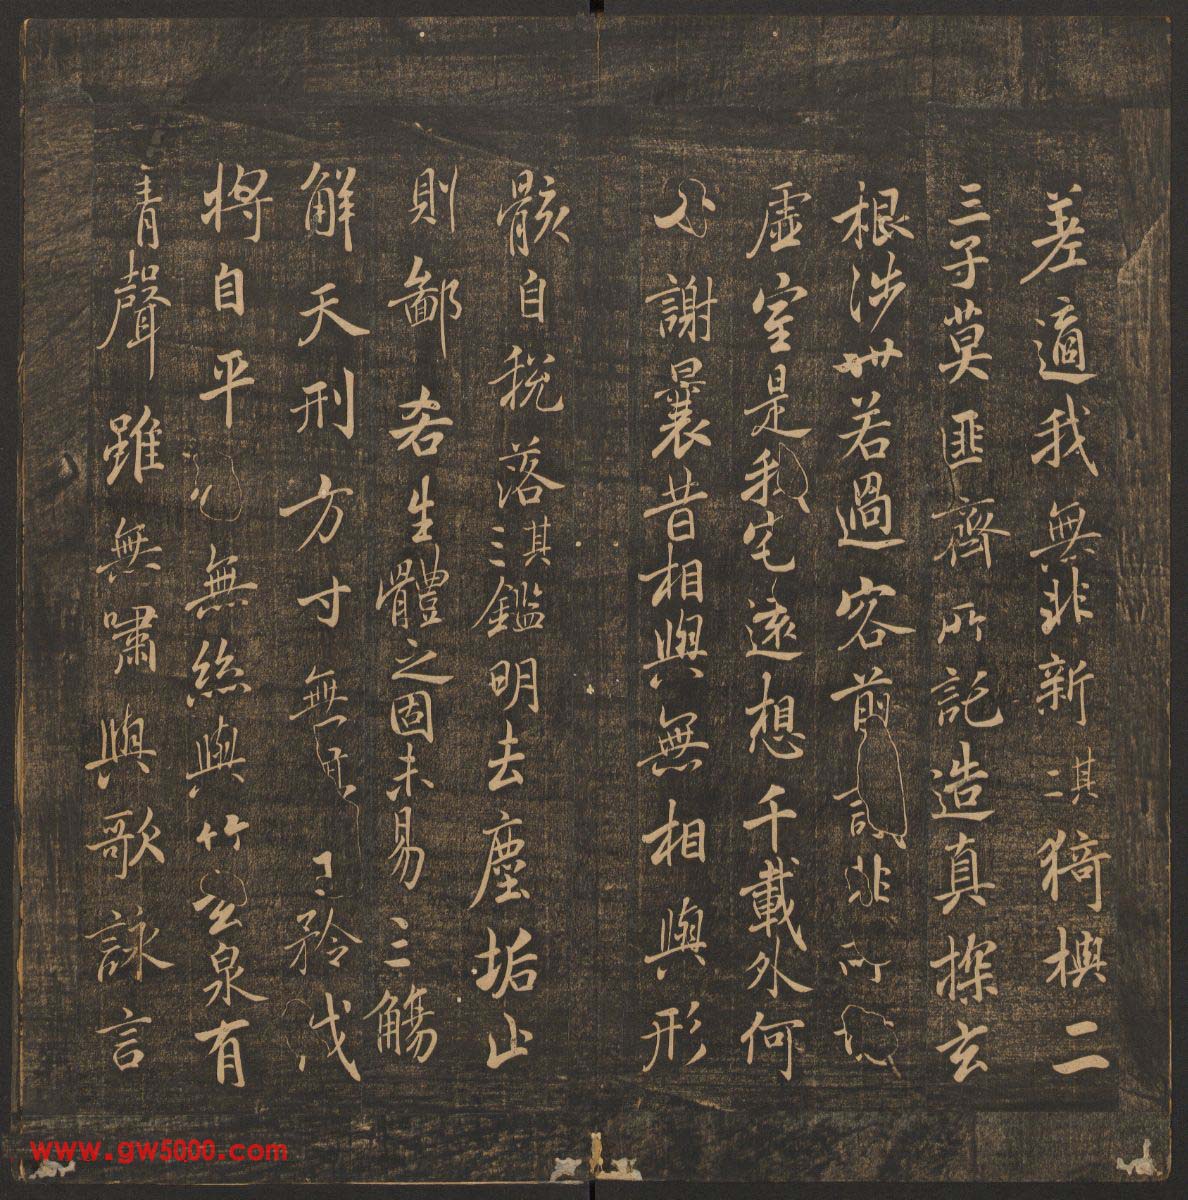 差適我無非新其二猗與二
三子莫匪齊所託造真探玄
根涉世若過客前 非所
虛室是我宅遠想千載外何
必謝曩昔相與無相與形
骸自稅落其三鑑明去塵垢止
則鄙吝生體之固未易三觴
解天刑方寸無 矜伐
將自平 無絲與竹玄泉有
清聲雖無嘯與歌詠言
www.gw5000.com